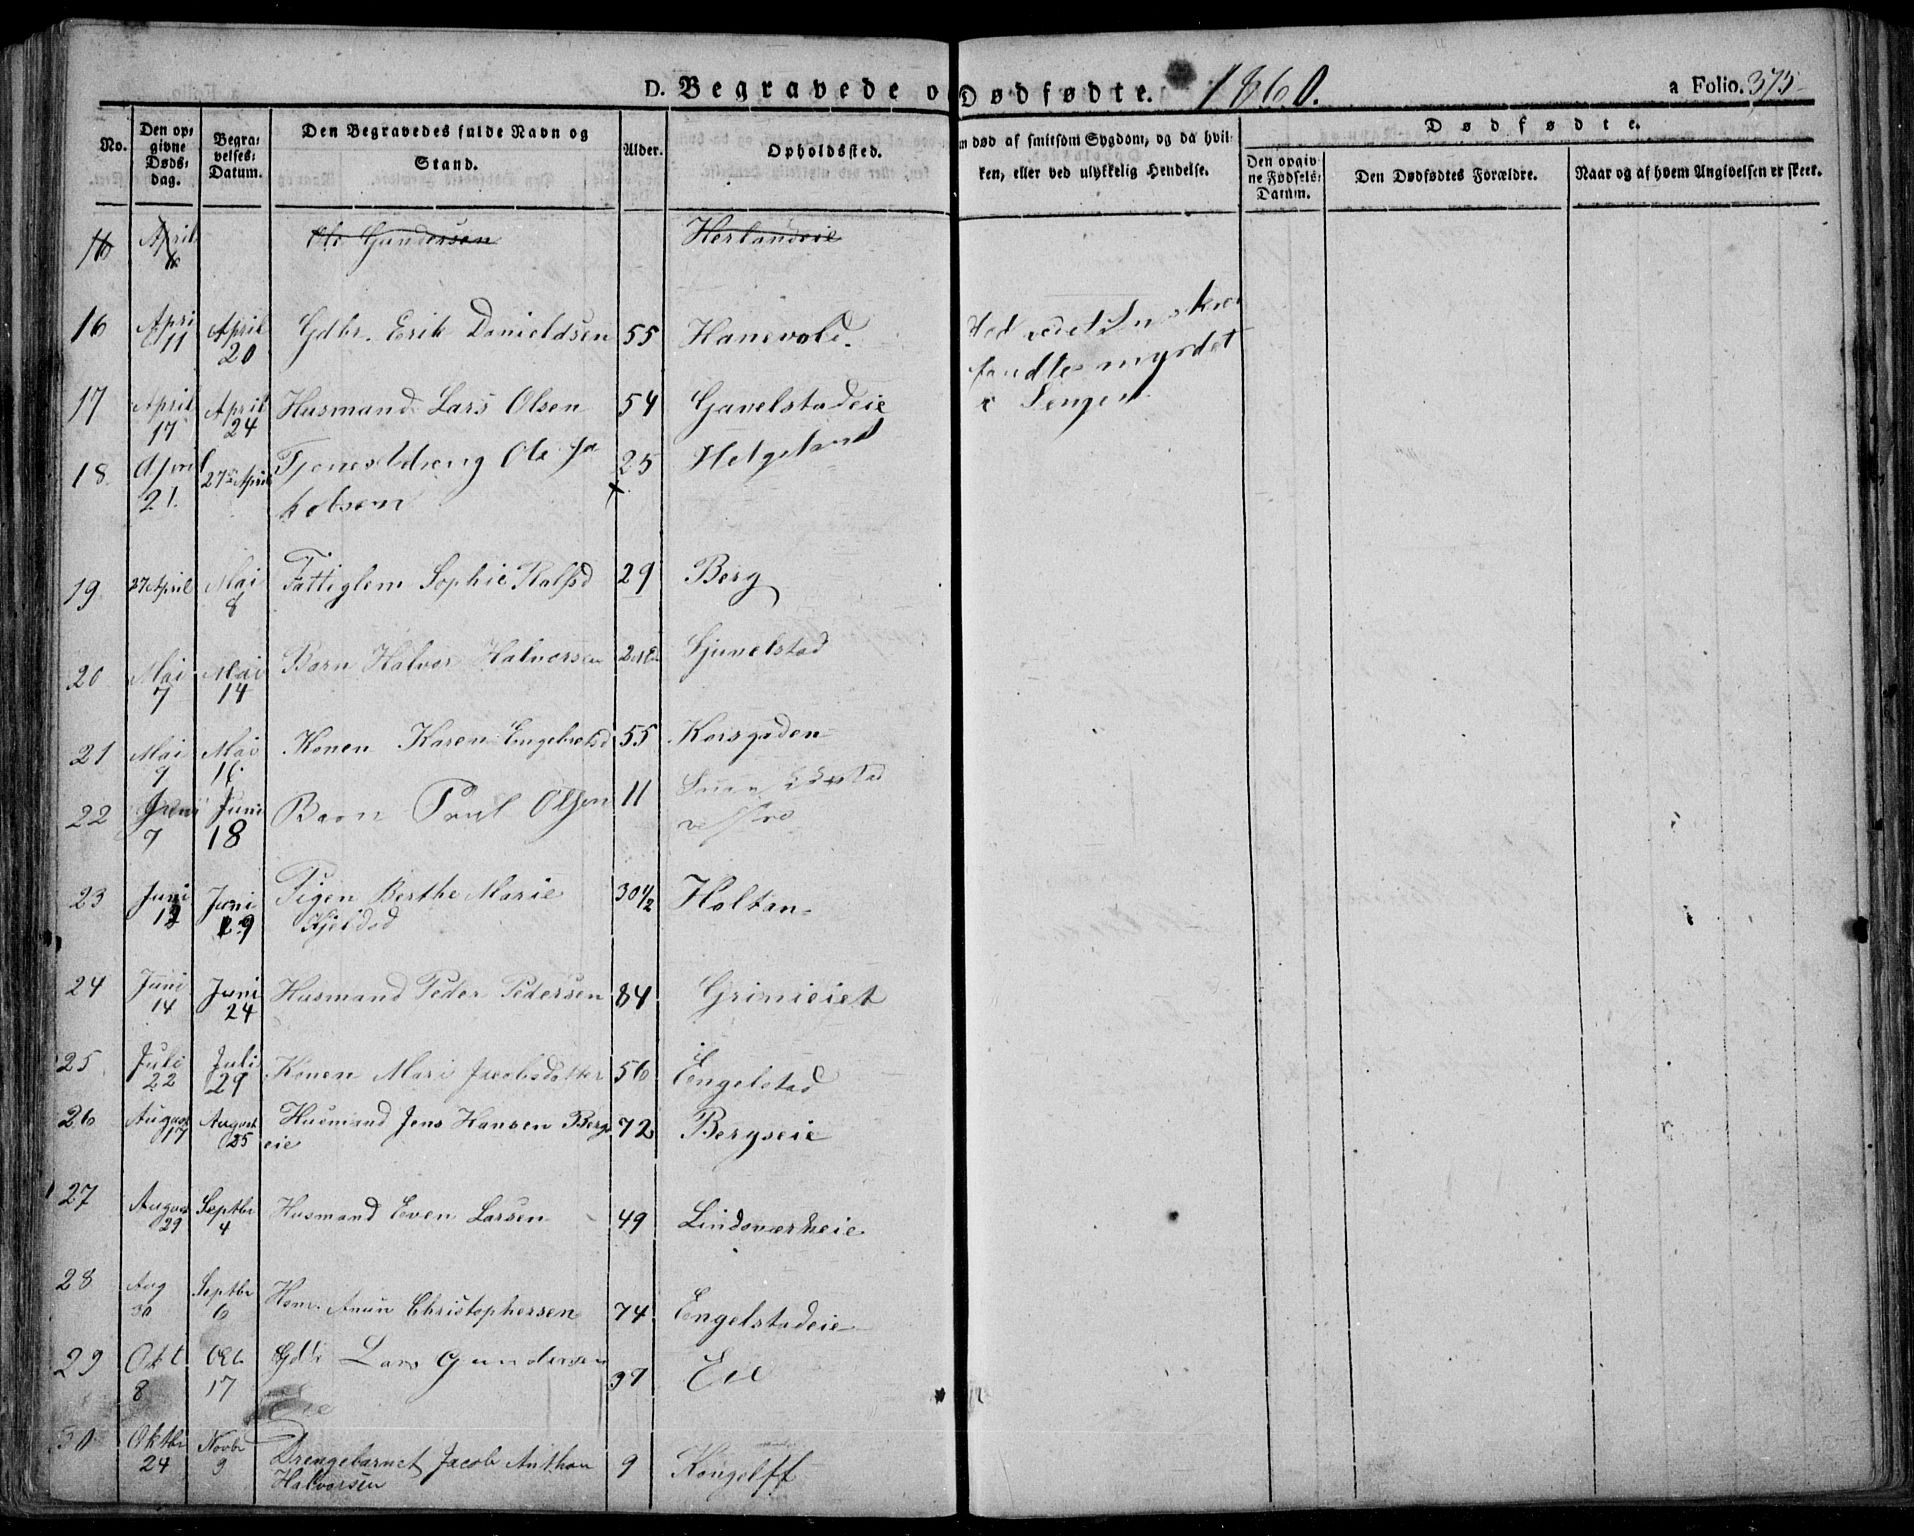 D. Begravede o Dødfødte. 1860. a Folio. 375
No.
Den opgivne Dødsdag.
Begravelses-Datum.
Den Begravedes fulde Navn og Stand.
Alder.
Opholdssted.
m død af smitsom Sygdom, og da hvilken, eller ved ulykkelig Hendelse.
Dødfødte.
Den opgivne Fødsels-Datum.
Den Dødfødtes Forældre.
Naar og af hvem Angivelsen er skeet.
16 April Ole Gundersen Herlandeie
16 April 11 April 20 Gdbr. Erik Danieldsen 55 Hanevold.
fandtes myrdet
i Sengen
17 April 17 April 24 Husmand Lars Olsen 54 Gavelstadeie
18 April 21. 27de April Tjenestdreng Ole Ja 25 Helgeland
kobsen
19 27 April Mai 8 Fattiglem Sophie 29 Berg
20 Mai 7 Mai 14 Barn Halvor Halvorsen Gjuvelstad
21 Mai 9 Mai 16 Konen Karen Engebretsd 55 Korsgaden
22 Juni 7 Juni 18 Barn Poul Olsen 11
vestre
23 Juni 12 Juni 19 Pigen Berthe Marie 30 1/2 Holtan
24 Juni 14 Juni 24 Husmand Peder Pedersen 84 Grimieiet
25 Juli 22 Juli 29 Konen Mari Jacobsdatter 56 Engelstad
26 August 17 August 25 Husmand Jens Hansen Bergs 72 Bergseie
eie
27 August 29 Septbr 4 Husmand Even Larsen 49 Lindsværkeie
28 Aug 30 Septbr 6 Hsm. Christophersen 74 Engelstadeie
29 Okt 8 Okt 17 Gdb Lars Gundersen 39 Eie
Eie
30 Oktbr 24 Novbr 9 Drengebarnet Jacob Anthon 9 Kongelff
Halvorsen